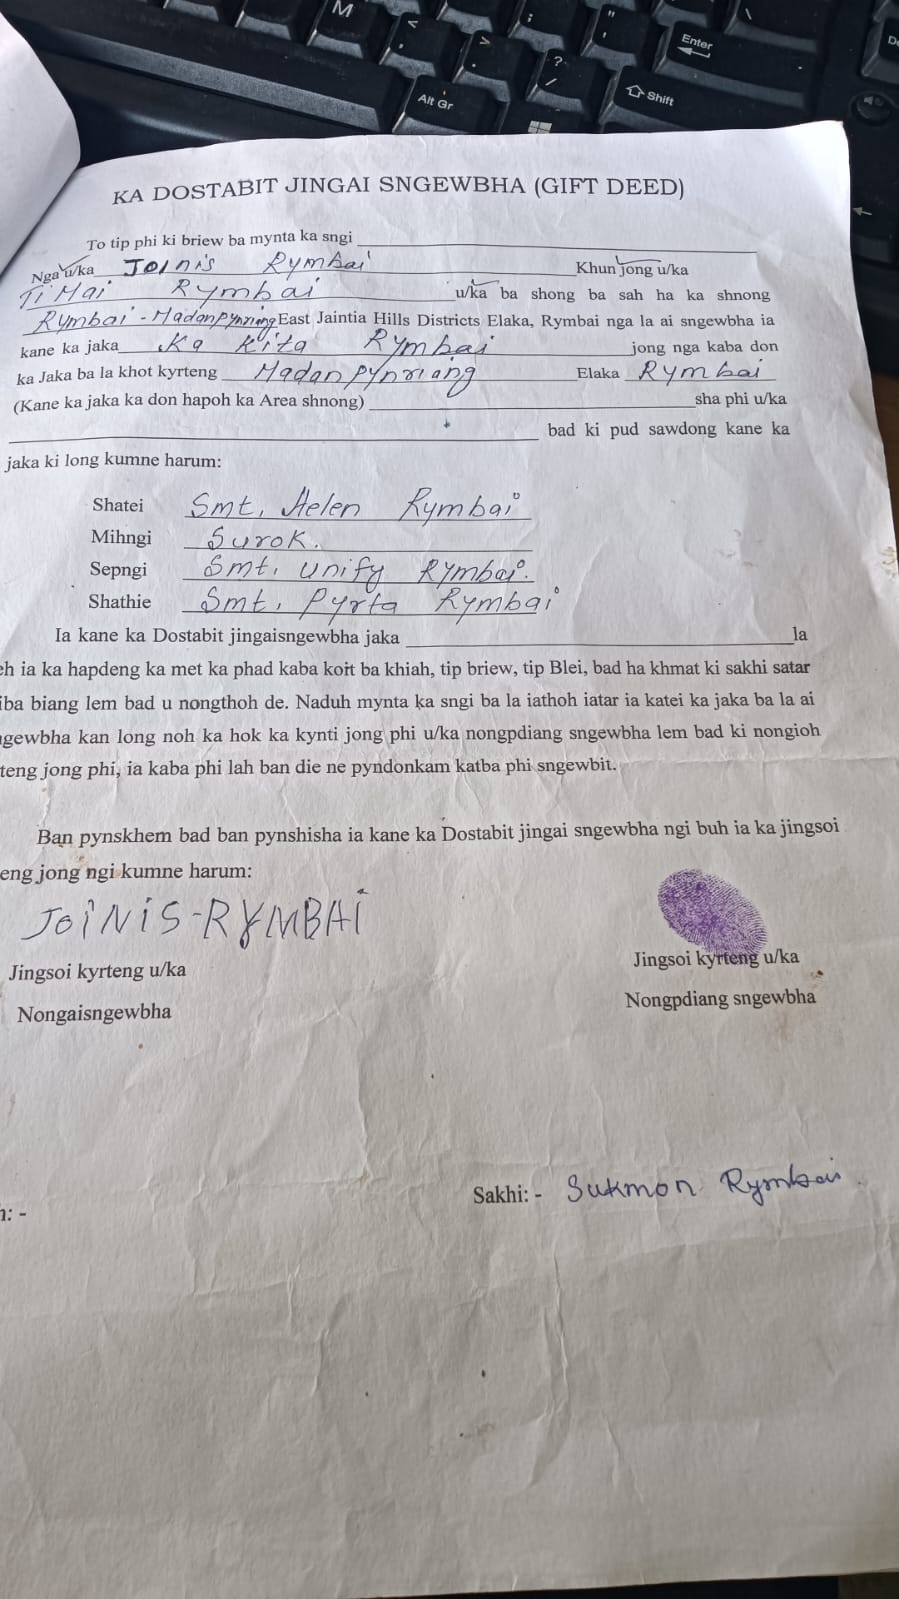 M
Alt Gr
Enter
Shift
KA DOSTABIT JINGAI SNGEWBHA (GIFT DEED)
To tip phi ki briew ba mynta ka sngi
Nga u/ka Joinis Rymbai Khun jong u/ka
Ti Mai Rymbai u/ka ba shong ba sah ha ka shnong
Rymbai - Madanpynriang East Jaintia Hills Districts Elaka, Rymbai nga la ai sngewbha ia
kane ka jaka Ka Rita Rymbai jong nga kaba don
ka Jaka ba la khot kyrteng Madanpynriang Elaka Rymbai
(Kane ka jaka ka don hapoh ka Area shnong) sha phi u/ka
bad ki pud sawdong kane ka
jaka ki long kumne harum:
Shatei Smt. Helen Rymbai
Mihngi Surok.
Sepngi Smt. Unify Rymbai.
Shathie Smt. Pyrta Rymbai
Ia kane ka Dostabit jingaisngewbha jaka la
eh ia ka hapdeng ka met ka phad kaba koit ba khiah, tip briew, tip Blei, bad ha khmat ki sakhi satar
iba biang lem bad u nongthoh de. Naduh mynta ka sngi ba la iathoh iatar ia katei ka jaka ba la ai
ngewbha kan long noh ka hok ka kynti jong phi u/ka nongpdiang sngewbha lem bad ki nongioh
teng jong phi, ia kaba phi lah ban die ne pyndonkam katba phi sngewbit.
Ban pynskhem bad ban pynshisha ia kane ka Dostabit jingai sngewbha ngi buh ia ka jingsoi
eng jong ngi kumne harum:
JOINIS-RYMBAI
Jingsoi kyrteng u/ka
Nongaisngewbha
Jingsoi kyrteng u/ka
Nongpdiang sngewbha
Sakhi: - Sukmon Rymbai.
: -